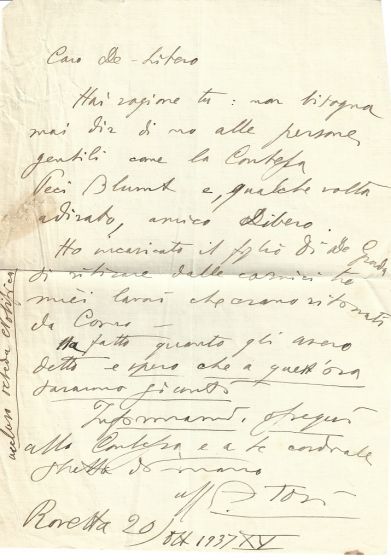 Caro De-Libero
Hai ragione tu: non bisogna
mai dir di no alle persone
gentili come la Contessa
Peci Blunt e, qualche volta
adirato, amico Libero.
Ho incaricato il figlio di De Grada
di ritirare dalle cornici tre
miei lavori che erano ritornati
da Como -
Ha fatto quanto gli avevo
detto e spero che a quest'ora
saranno giunti
Informami, ossequi
alla Contessa e a te cordiale
stretta di mano
aff Tosi
Rovetta 20/Ott 1937 XV
accluso scheda